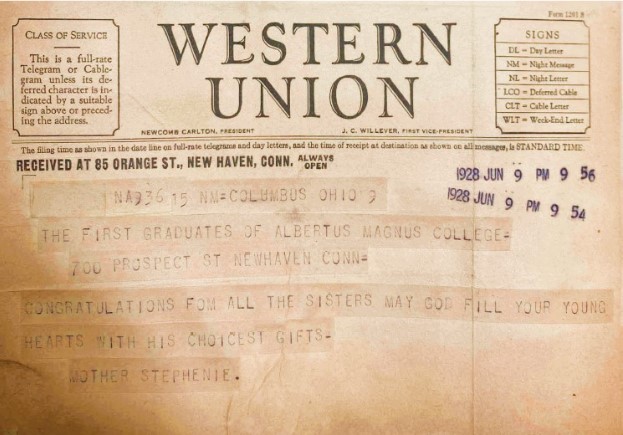 Form 1201 S
CLASS OF SERVICE
This is a full-rate
Telegram or Cable-
gram unless its de-
ferred character is in-
dicated by a suitable
sign above or preced-
ing the address.
WESTERN
UNION
NEWCOMB CARLTON, PRESIDENT
J. C. WILLEVER, FIRST VICE-PRESIDENT
SIGNS
DL = Day Letter
NM = Night Message
NL = Night Letter
LCO = Deferred Cable
CLT = Cable Letter
WLT = Week-End Letter
The filing time as shown in the date line on full-rate telegrams and day letters, and the time of receipt at destination as shown on all messages, is STANDARD TIME.
RECEIVED AT 85 ORANGE ST., NEW HAVEN, CONN. ALWAYS OPEN
1928 JUN 9 PM 9 56
1928 JUN 9 PM 9 54
NA936 15 NM=COLUMBUS OHIO 9
THE FIRST GRADUATES OF ALBERTUS MAGNUS COLLEGE=
700 PROSPECT ST NEWHAVEN CONN=
CONGRATULATIONS FOM ALL THE SISTERS MAY GOD FILL YOUR YOUNG
HEARTS WITH HIS CHOICEST GIFTS-
MOTHER STEPHENIE.